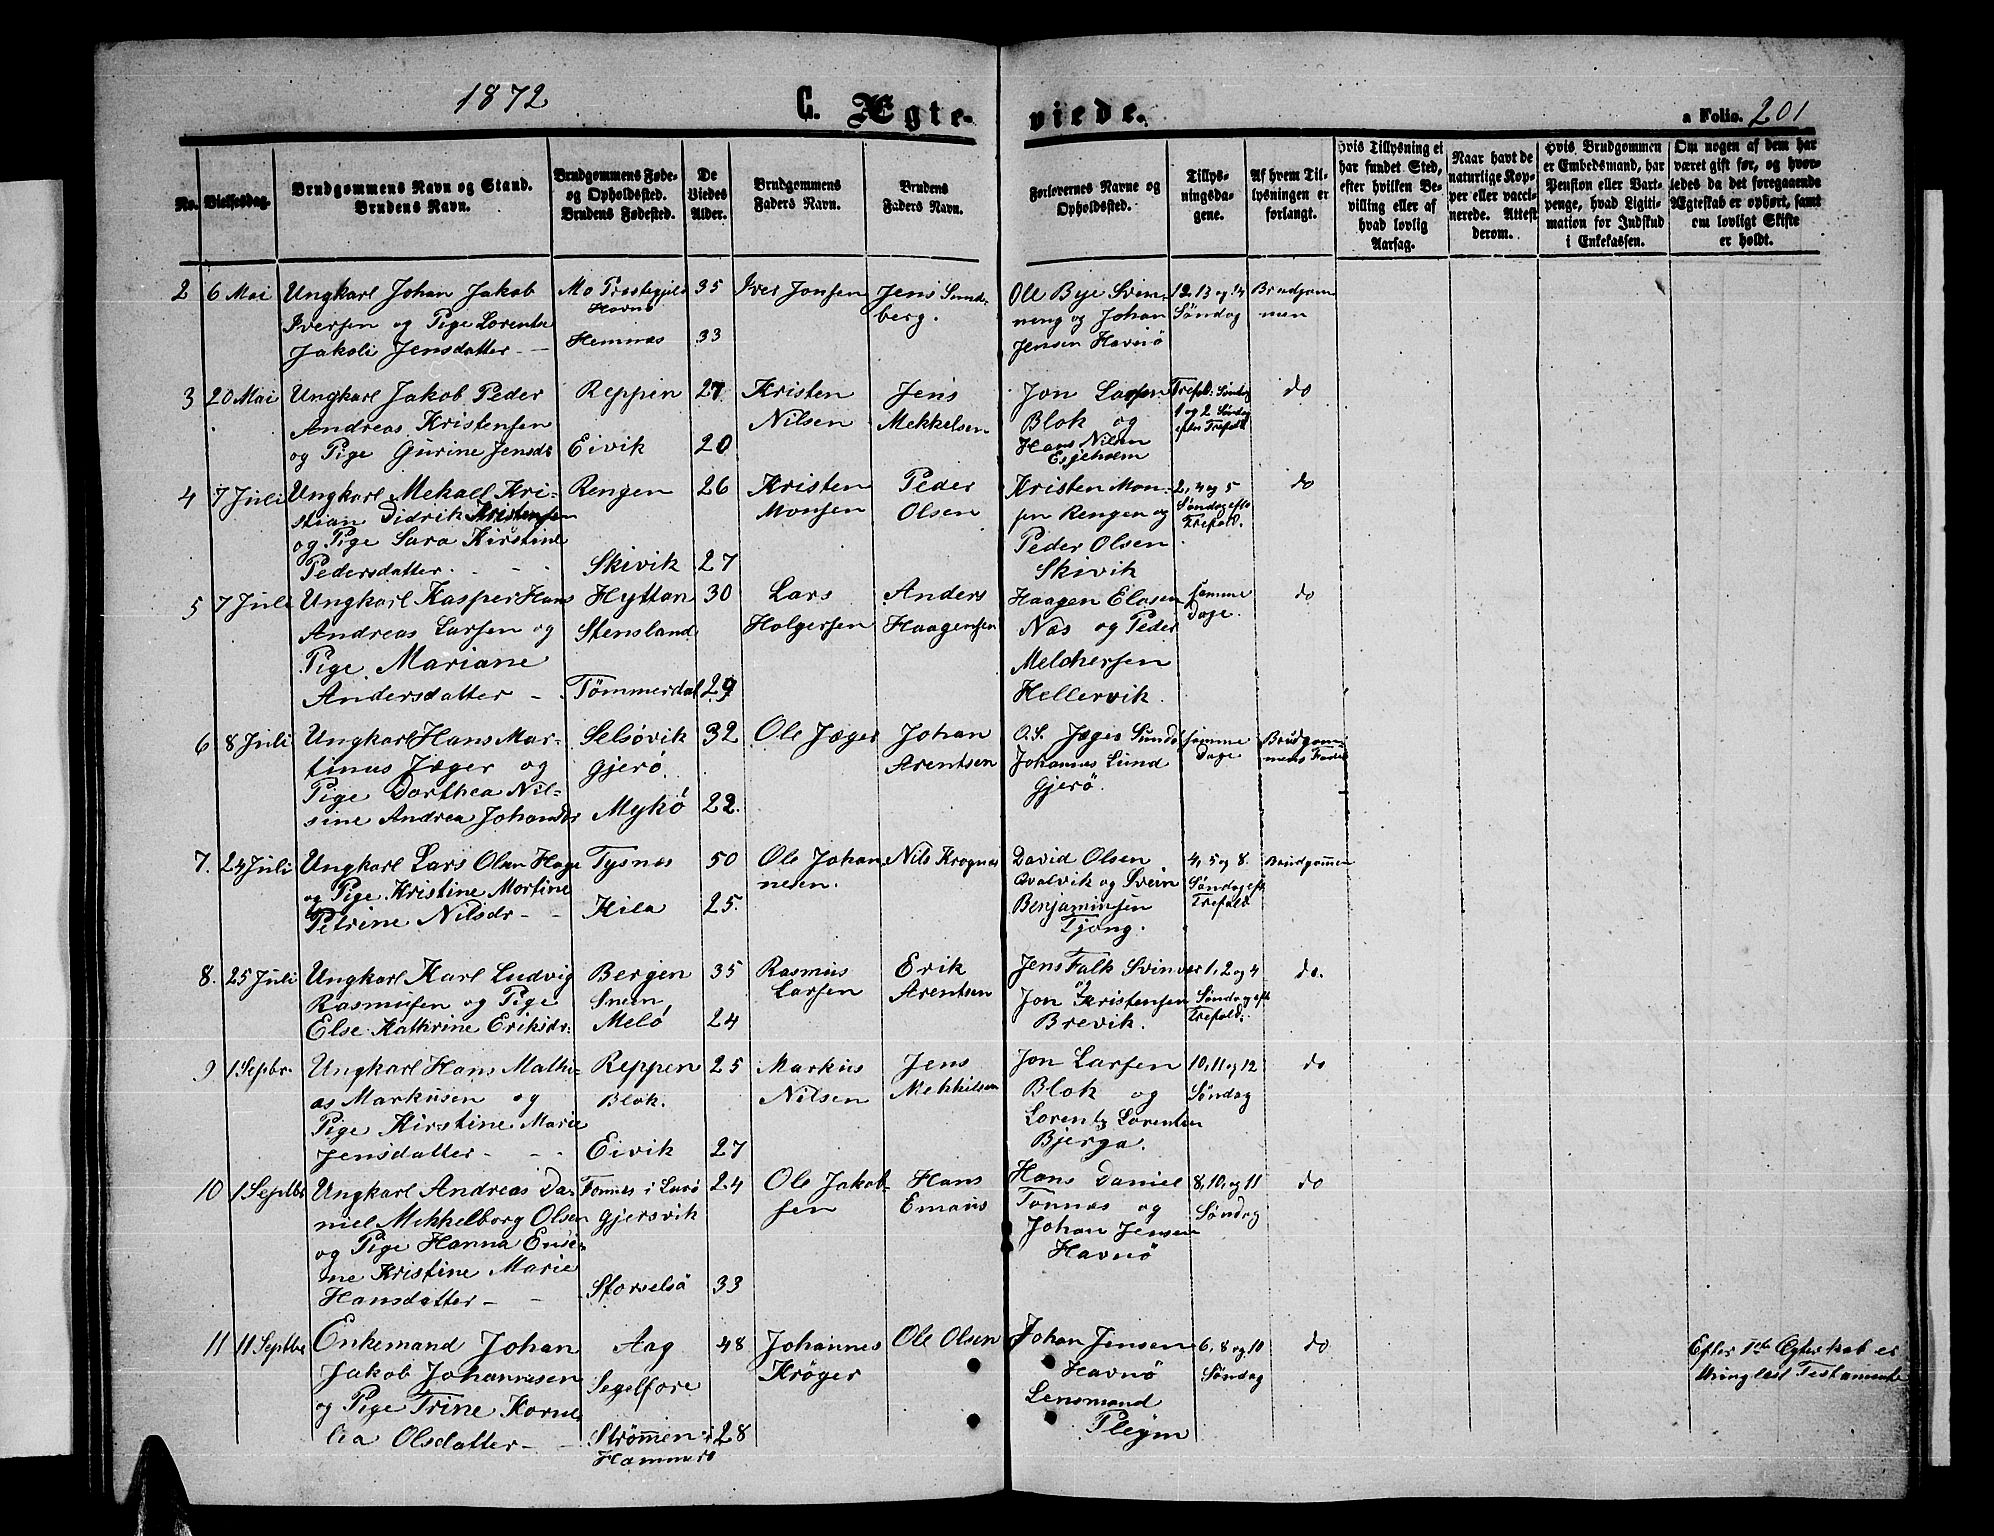 1872
C. Ægte-
viede.
a Folio. 201
No.
Vielsesdag.
Brudgommens Navn og Stand.
Brudens Navn.
Brudgommens Føde-
og Opholdssted.
Brudens Fødested.
De
Viedes
Alder.
Brudgommens
Faders Navn.
Brudens
Faders Navn.
Forlovernes Navne og
Opholdssted.
Tillys-
ningsda-
gene.
Af hvem Til-
lysningen er
forlangt.
Hvis Tillysning ei
har fundet Sted,
efter hvilken Be-
villing eller af
hvad lovlig
Aarsag.
Naar havt de
naturlige Kop-
per eller vacci-
nerede. Attest
derom.
Hvis Brudgommen
er Embedsmand, har
Pension eller Vart-
penge, hvad Ligiti-
mation for Indskud
i Enkekassen.
Om nogen af dem har
været gift før, og hvor-
ledes da det foregaaende
Ægteskab er ophørt, samt
om lovligt Skifte
er holdt.
2 6 Mai
Ungkarl Johan Jakob
Iversen og Pige Lorentse
Jakoli Jensdatter -
Mo Prestegjeld
Havnø
Hemnæs
35
33
Iver Jonsen
Jens Sund-
berg.
Ole Bye Svin-
neng og Johan
Jensen Havnø
12, 13 og 14
Søndag
Brudgom
men
3 20 Mai
Ungkarl Jakob Peder
Andreas Kristensen
og Pige Gurine Jensd.
Reppen
Eivik
27
20
Kristen
Nilsen
Jens
Mekkelsen
Jon Larsen
Blok og
Hans Nilsen
Esjeholm
Trefold. Søndag
1 og 2 Søndag
efter Trefold.
do
4 7 Juli
Ungkarl Mekael Kri-
stian Didrik Kristensen
og Pige Sara Kirstine
Pedersdatter. - -
Rengen
Skivik
26
27
Kristen
Monsen
Peder
Olsen
Kristen Mon-
sen Rengen og
Peder Olsen
Skivik
2, 4 og 5
Søndag eft.
Trefold.
do
5 7 Juli
Ungkarl Kasper Hans
Andreas Larsen og
Pige Mariane
Andersdatter -
Hyttan
Stensland
Tømmerdal
30
29
Lars
Holgersen
Anders
Haagensen
Haagen Elasen
Næs og Peder
Melchersen
Hellervik.
samme
Dage.
do
6 8 Juli
Ungkarl Hans Mar-
tinus Jæger og
Pige Dorthea Nil-
sine Andrea Johansdr
Selsøvik
Gjerø.
Mykø
32
22.
Ole Jæger
Johan
Arentsen
O.S. Jæger Sundø
Johannes Lund
Gjerø.
samme
Dage
Brudgom-
mens Fader
7. 24 Juli
Ungkarl Lars Olsen Hage
og Pige Kristine Mortine
Petrine Nilsdr - -
Tysnes
Kila
50
25.
Ole Johan
nesen.
Nils Krognæs
David Olsen
Qvalvik og Svein
Benjaminsen
Tjong.
4, 5 og 8.
Søndag eft
Trefold.
Brudgommen
8. 25 Juli
Ungkarl Karl Ludvig
Rasmusen og Pige
Else Kathrine Eriksdr.
Bergen
Sneen
Melø
35
24
Rasmus
Larsen
Erik
Arentsen
Jens Falk Svinvær
og
Jon Kristensen
Brevik.
1, 2 og 4
Søndag eft
Trefold.
do.
9 1 Sepbr.
Ungkarl Hans Mathi-
as Markusen og
Pige Kirstine Marie
Jensdatter - - -
Reppen
Blok.
Eivik
25
27
Markus
Nilsen
Jens
Mekkelsen
Jon Larsen
Blok og
Lorentz Lorentsen
Bjerga.
10, 11 og 12
Søndag
do
10 1 Septbr
Ungkarl Andreas Da-
niel Mikkelborg Olsen
og Pige Hanna Ensi-
ne Kristine Marie
Hansdatter - -
Tonnes i Lurø
Gjersvik
Storselsø
24
33
Ole Jakob-
sen
Hans
Emaus
Hans Daniel
Tonnæs og
Johan Jensen
Havnø
8, 10, og 11
Søndag
do
11 11 Septbr
Enkemand Johan
Jakob Johannesen
og Pige Trine Korne
lia Olsdatter - -
Aag
Segelfore
Strømmen i
Hammerø
48
28
Johannes
Krøger
Ole Olsen
Johan Jensen
Havnø
Lensmand
Pleym
6, 8 og 10
Søndag
do
Efter 1ste Ægteskab er
thinglæst Testamente